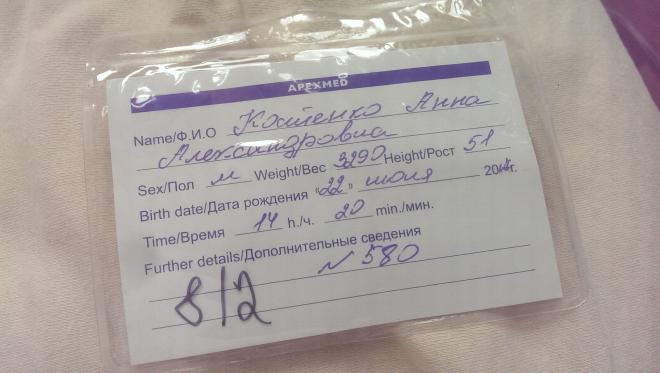 APEXMED
Name/Ф.И.О Костенко Анна
Александровна
Sex/Пол м Weight/Вес 3290 Height/Рост 51
Birth date/Дата рождения "22" июля г.
Time/Время 14 h./ч. 20 min./мин.
Further details/Дополнительные сведения
N 580
8/2